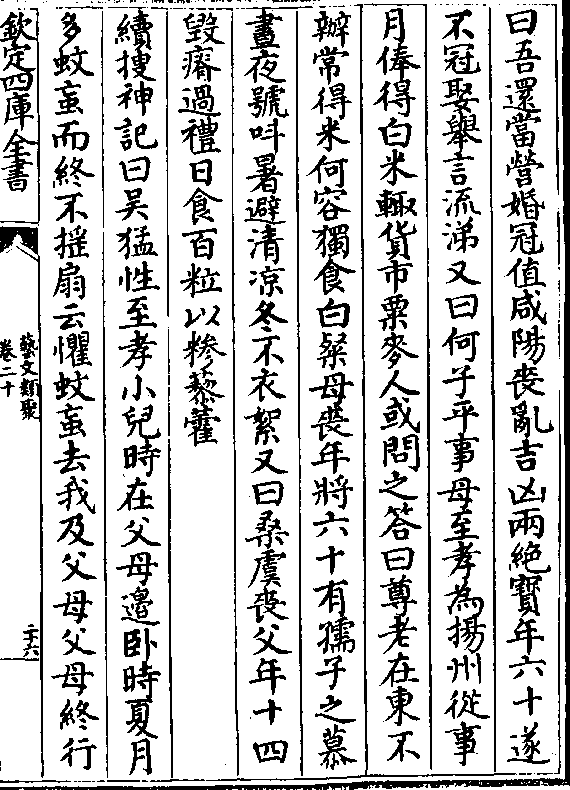 曰吾還當營婚冠值咸陽喪亂吉凶兩絶寳年六十遂
不冠娶舉言流涕又曰何子平事母至孝為揚州從事
月俸得白米輙貨市粟麥人或問之答曰尊老在東不
辦常得米何容獨食白粲母喪年將六十有孺子之慕
晝夜號叫暑避清凉冬不衣絮又曰桑虞喪父年十四
毀瘠過禮日食百粒以糁藜藿
續搜神記曰吴猛性至孝小兒時在父母邉卧時夏月
多蚊䖟而終不摇扇云懼蚊䖟去我及父母父母終行
欽定四庫全書
藝文類聚
卷二十
二十六